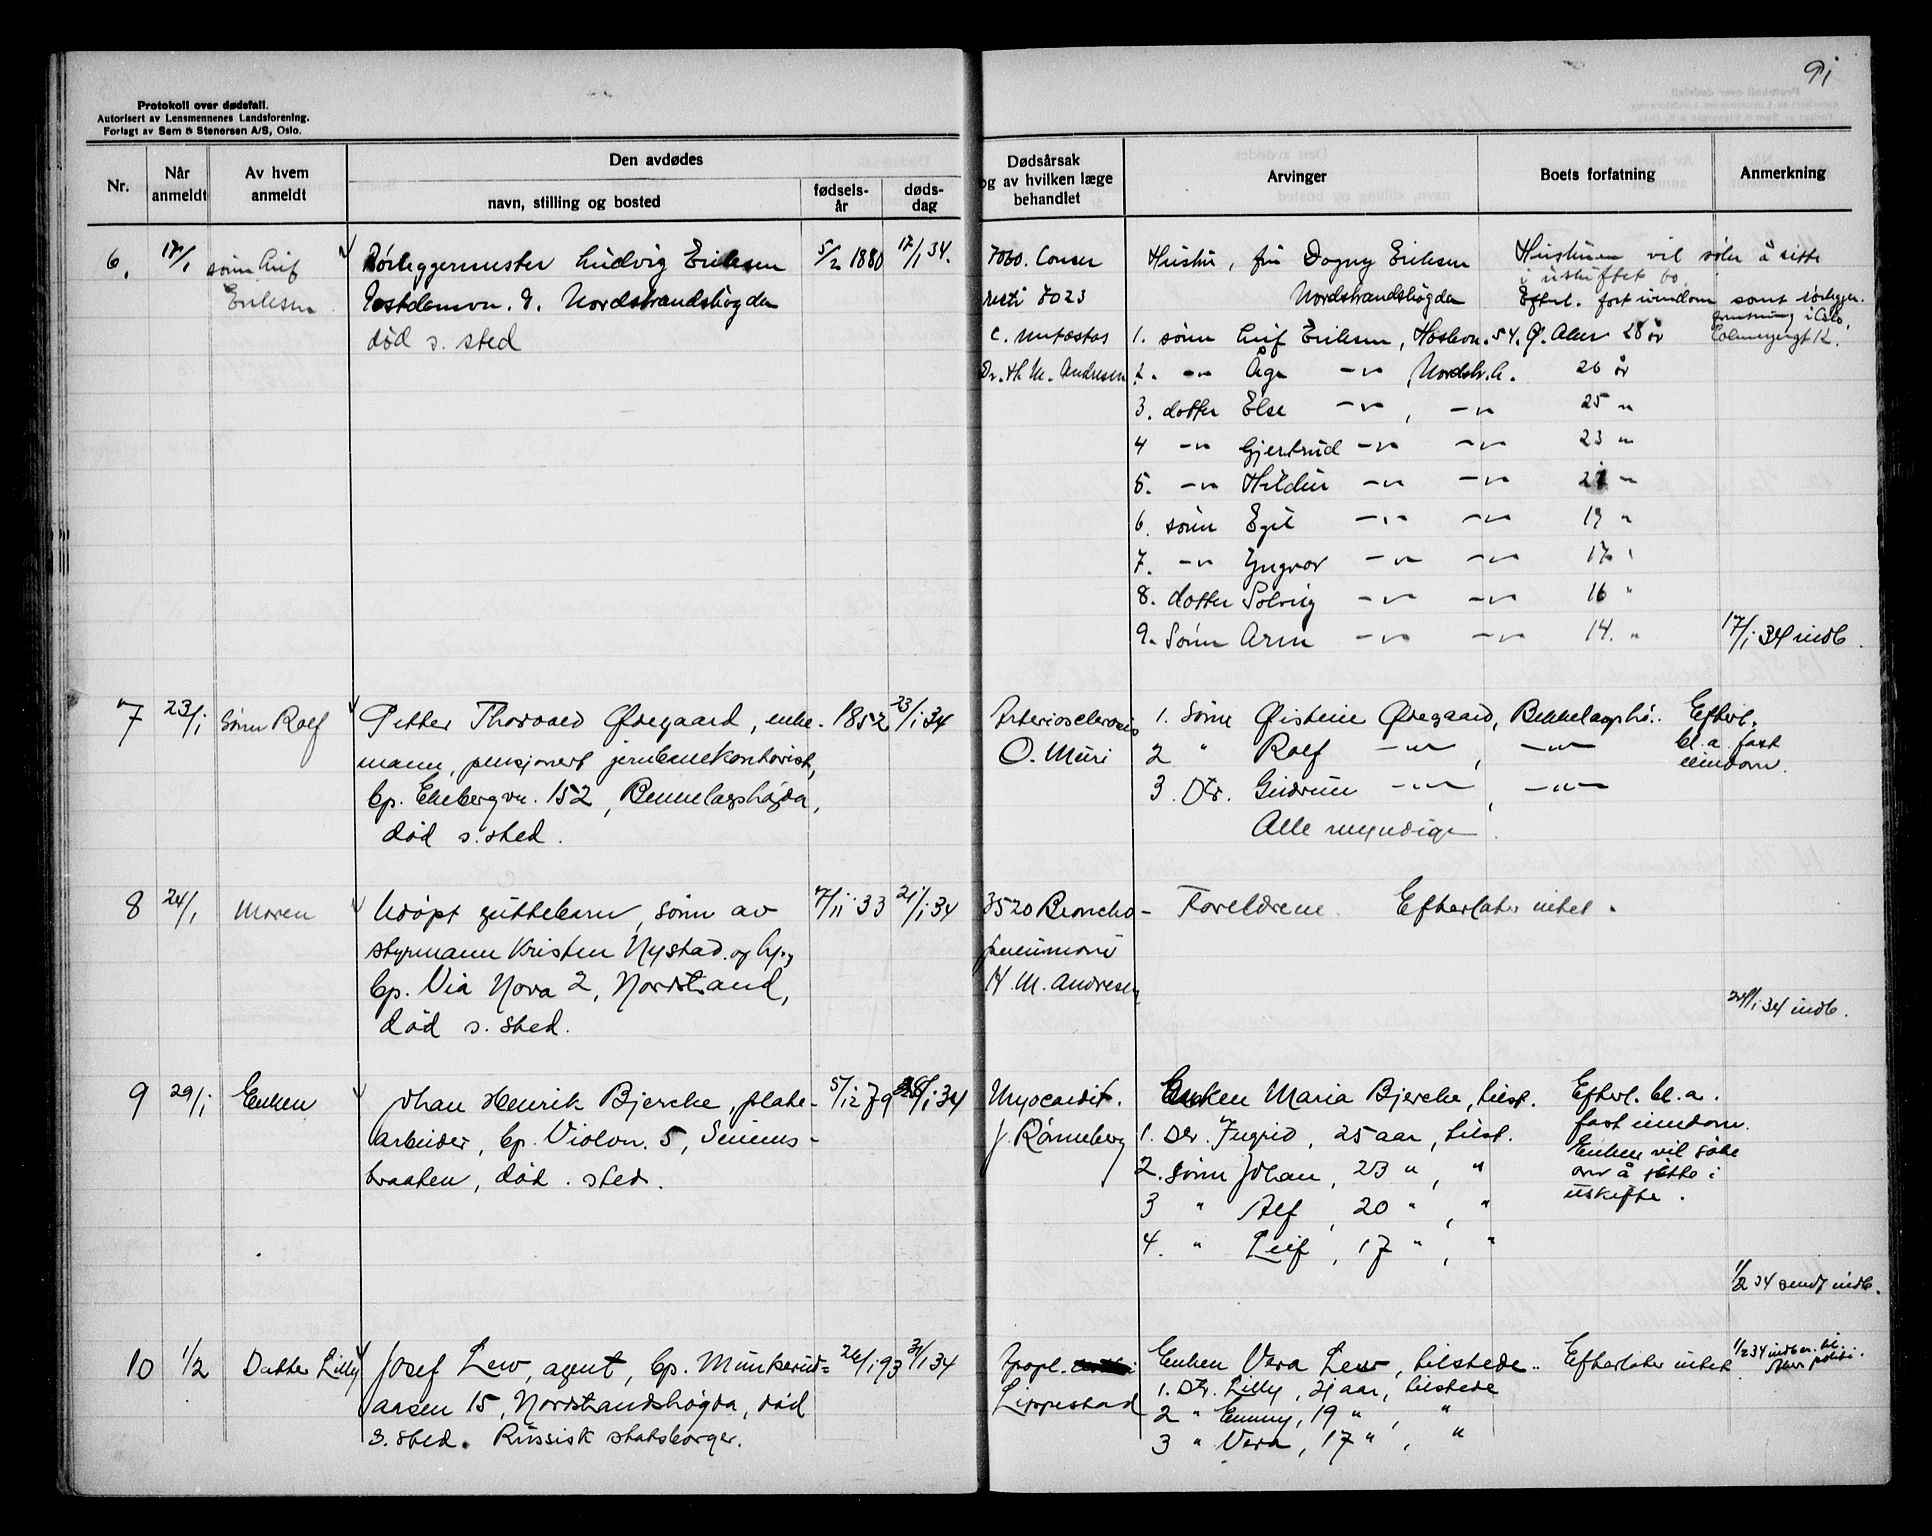 91
Protokoll over dødsfall.
Autorisert av Lensmennenes Landsforening.
Forlagt av Sem & Stenersen A/S, Oslo.
Nr.
Når anmeldt
Av hvem anmeldt
Den avdødes
navn, stilling og bosted
fødsels-år
døds-dag
Dødsårsak og av hvilken læge behandlet
Arvinger
Boets forfatning
Anmerkning
6. 17/1 sønn Leif Eriksen
Rørleggermester Ludvig Eriksen 5/2 1880 17/1 34.
Nordstrandshögda
død s. sted
Cancer
c. metastas
Dr. H. M. Andresen
Hustru, fru Dagny Eriksen
Nordstrandshögda
1. sönn Leif Eriksen, 54. Ø. Aker 28 år
2. -"- Åge -"- Nordstr.h. 26 år
3. datter Else -"-, -"- 25 "
4 -"- Gjertrud -"- -"- 23 "
5. -"- Hildur -"- -"- 21 "
6. sönn Egil -"- -"- 19 "
7. -"- Yngvar -"- -"- 17 "
8. datter Solveig -"- -"- 16 "
9. Sönn Arne -"- -"- 14. "
Hustruen vil söke å sitte
i uskiftet bo
Efterl. fast eiendom samt rörlegger-
forretning i Oslo,
17/1 34 indb.
7 23/1 Sönn Rolf
Petter Thorvald Ødegaard, enke- 1852 23/1 34
mann, pensjonert jernbanekontorist,
bp. Ekebergvn. 152, Bekkelagshögda,
död s. sted.
Arteriosclerosis
O. Muri
1. Sönn Øistein Ødegaard, Bekkelagshö.
2 " Rolf -"-, -"-
3. Dtr. Gudrun -"-, -"-
Alle myndige.
Efterl.
bl. a. fast
eiendom.
8 24/1 Moren
Udöpt guttebarn, sönn av 7/11 33 21/1 34
styrmann Kristen Nystad og h.,
bp. Via Nova 2, Nordstrand,
död s. sted.
3520 Broncho-
pneumoni
H. M. Andresen
Foreldrene. Efterlater intet.
24/1 34 indb.
9 29/1 Enken
Johan Henrik Bjercke, plate- 5/12 79 28/1 34
arbeider, bp. Violvn. 5, Simens-
braaten, död s. sted.
Myocardit.
J. Rönneberg
Enken Maria Bjercke, tilst.
1. Dtr. Ingrid, 25 aar, tilst.
2. Sönn Johan, 23 ", "
3 " Alf, 20 ", "
4. " Leif, 17 ", "
Efterl. bl. a.
fast eiendom.
Enken vil söke
om å sitte i
uskifte.
1/2 34 sendt indb.
10 1/2 Datter Lilly
Josef Lew, agent, bp. Munkerud= 26/1 93 31/1 34
aasen 15, Nordstrandshögda, död
s. sted. Russisk statsborger.
Apopl.
Lippestad
Enken Vera Lew, tilstede.
1. Dtr. Lilly, 21 aar, tilstede
2 " Emmy, 19 ", "
3 " Vera, 17 ", "
Efterlater intet.
1/2 34 indb.